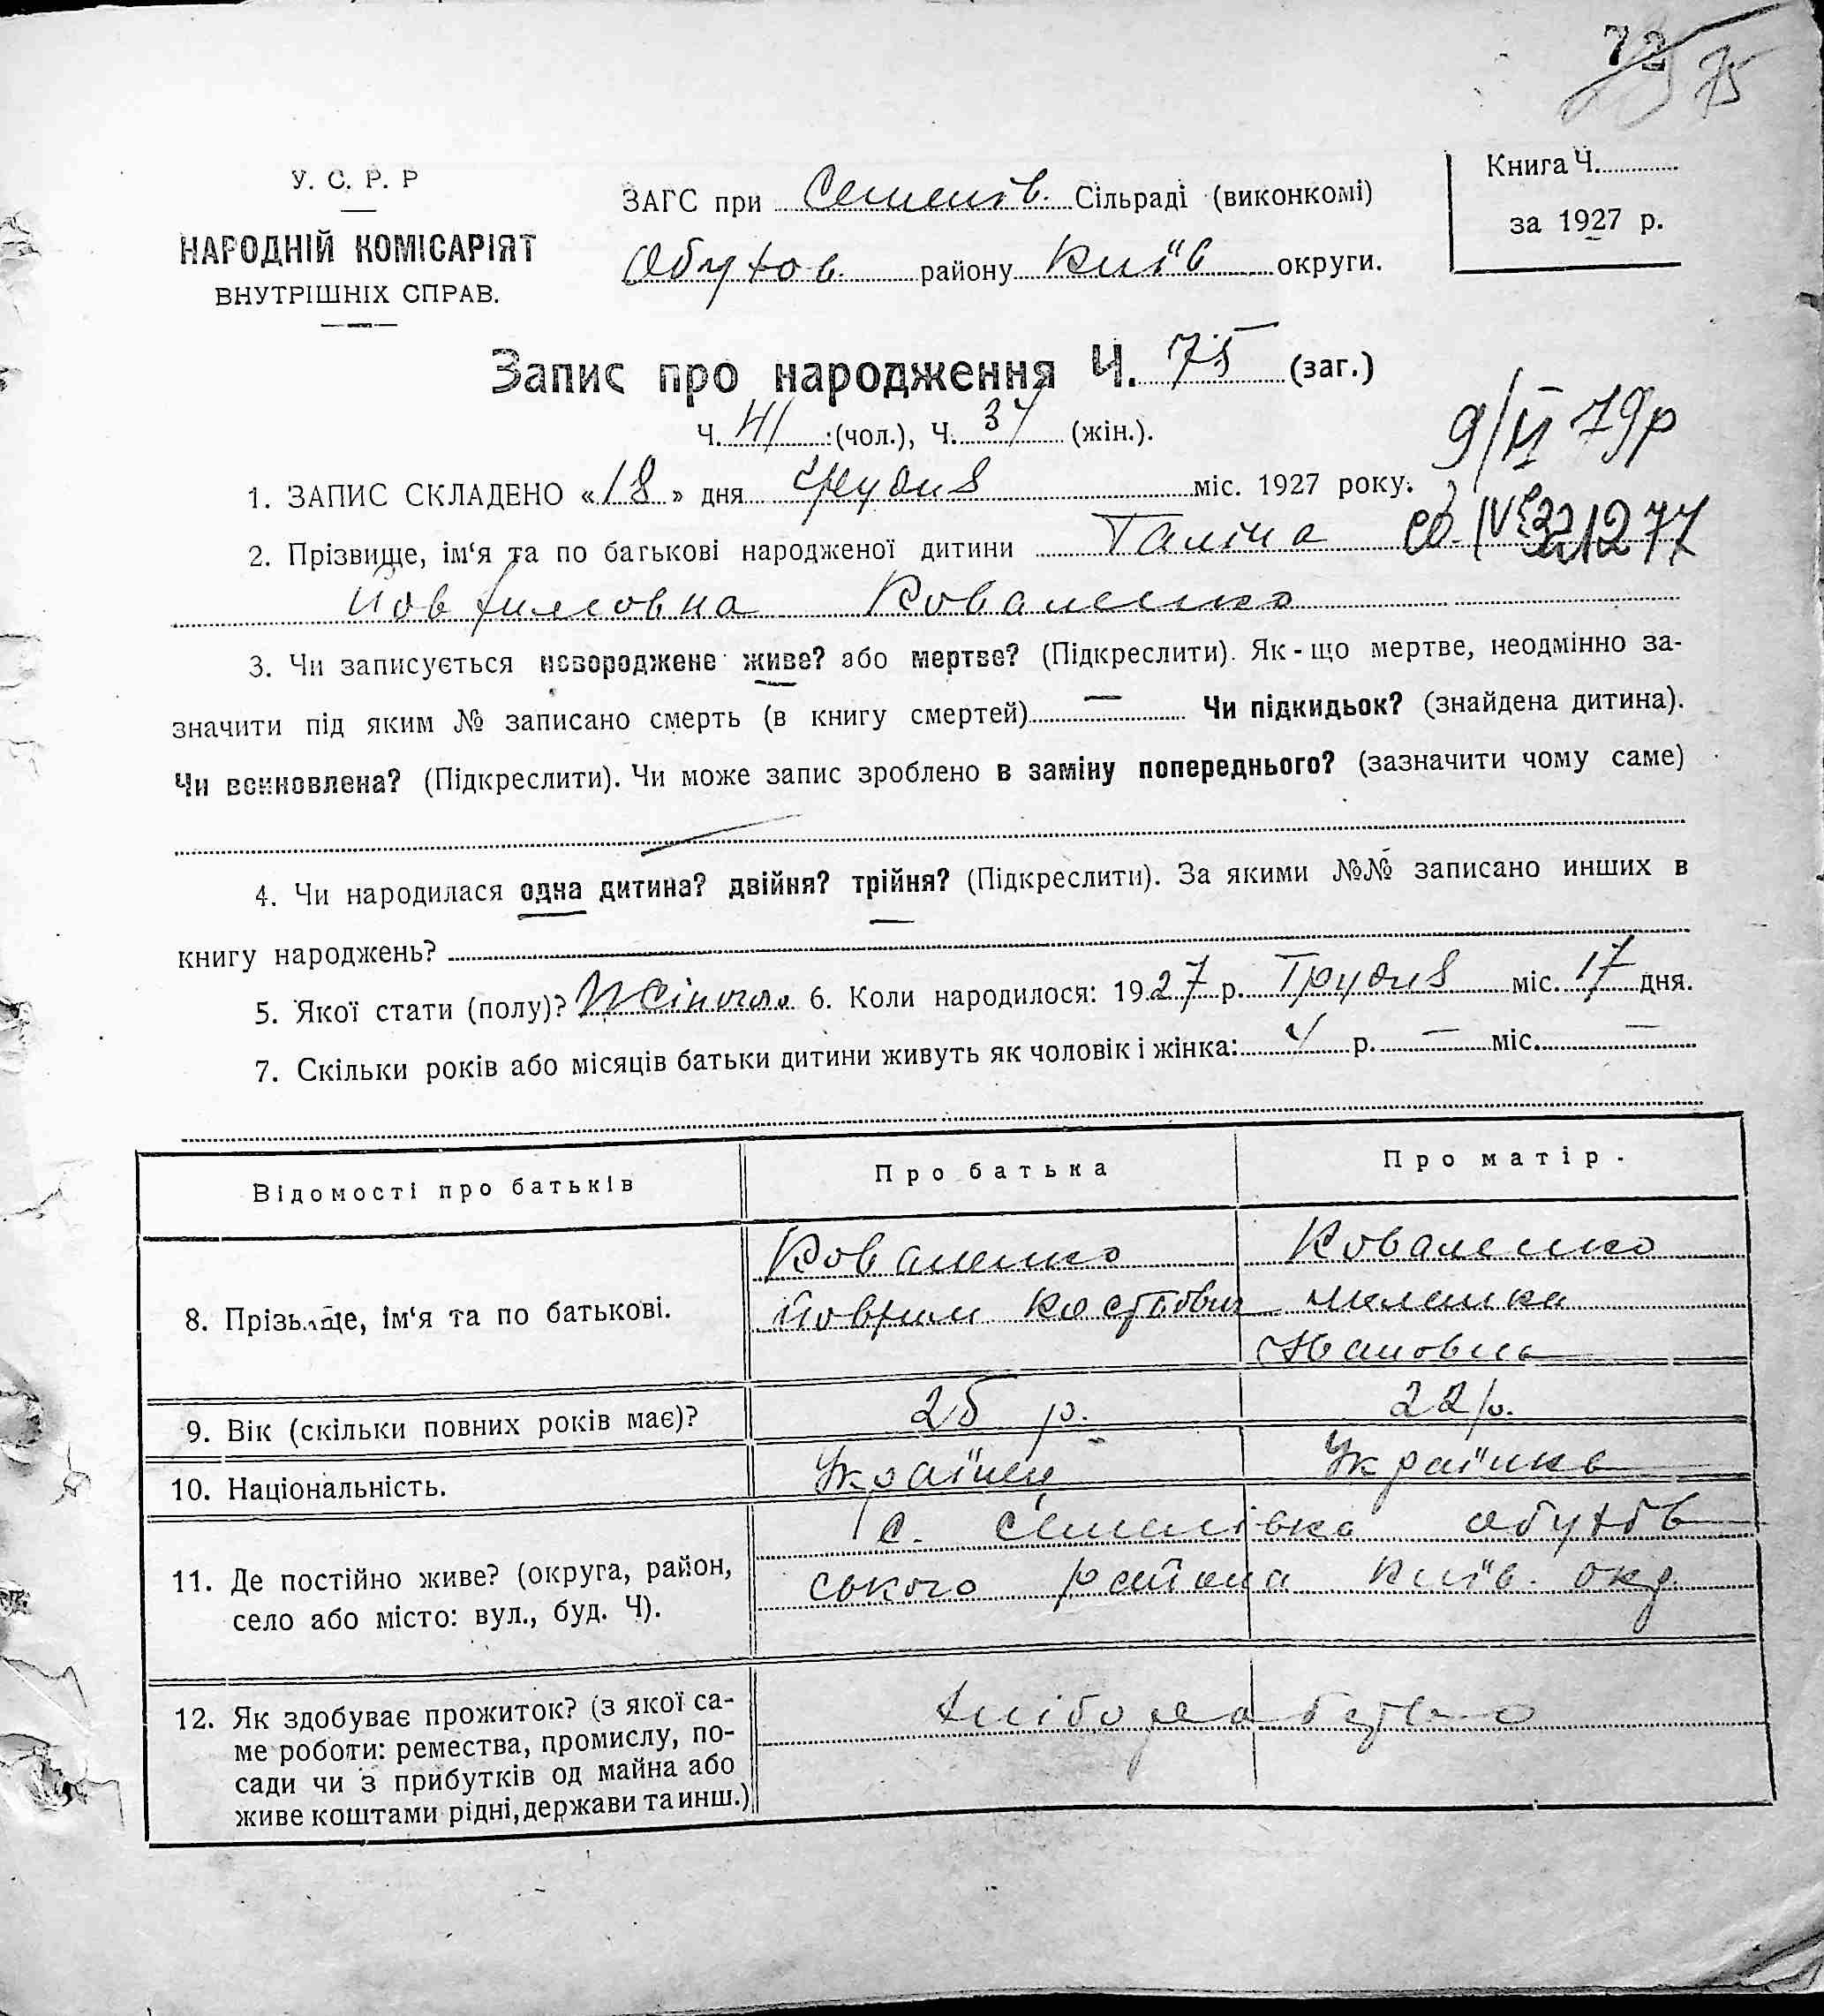 72 75
У. С. Р. Р
НАРОДНІЙ КОМІСАРІЯТ
ВНУТРІШНІХ СПРАВ.
ЗАГС при Семенів. Сільраді (виконкомі)
Обухов. району Київ округи.
Книга Ч.
за 1927 р.
Запис про народження Ч. 75 (заг.)
Ч. 41 (чол.), Ч. 34 (жін.).
9/VI 79р
1. ЗАПИС СКЛАДЕНО «18» дня Грудня міс. 1927 року.
2. Прізвище, ім‘я та по батькові народженої дитини Галіна
Йовхимовна Коваленко
3. Чи записується новороджене живе? або мертве? (Підкреслити). Як-що мертве, неодмінно за-
значити під яким № записано смерть (в книгу смертей) — Чи підкидьок? (знайдена дитина).
Чи всиновлена? (Підкреслити). Чи може запис зроблено в заміну попереднього? (зазначити чому саме)
4. Чи народилася одна дитина? двійня? трійня? (Підкреслити). За якими №№ записано инших в
книгу народжень?
5. Якої стати (полу)? Жіночої 6. Коли народилося: 1927 р. Грудня міс. 17 дня.
7. Скільки років або місяців батьки дитини живуть як чоловік і жінка: 4 р. — міс. —
Відомості про батьків
Про батька
Про матір.
8. Прізвище, ім‘я та по батькові.
Коваленко
Йовхим Костьович
Коваленко
Ивановна
9. Вік (скільки повних років має)?
25 р.
22 р.
10. Національність.
Українец
Українка
11. Де постійно живе? (округа, район,
село або місто: вул., буд. Ч).
с. Семенівка Обухів
ського района Київ. окр.
12. Як здобуває прожиток? (з якої са-
ме роботи: ремества, промислу, по-
сади чи з прибутків од майна або
живе коштами рідні, держави та инш.)